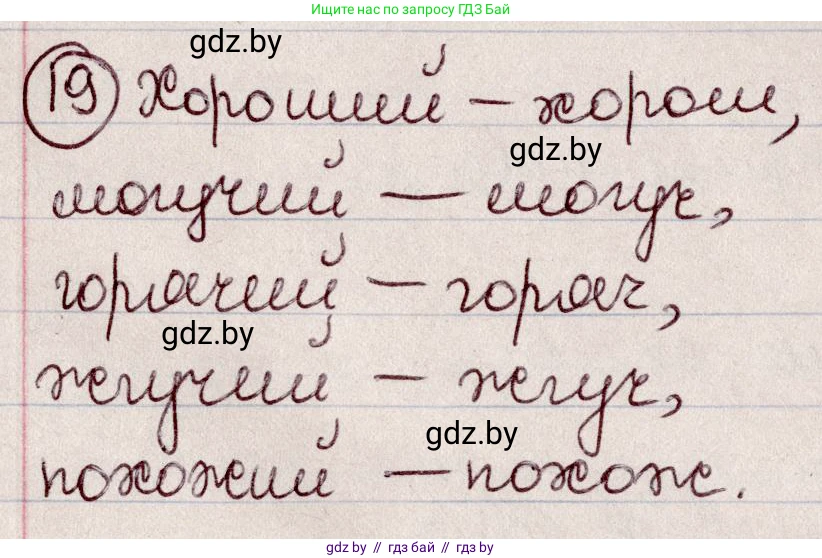 Ищите нас по запросу ГДЗ Бай
gdz.by
19 Хороший – хорош,
gdz.by
могучий – могуч,
горячий – горяч,
gdz.by
жгучий – жгуч,
gdz.by
похожий – похож.
gdz.by // гдз бай // гдз by